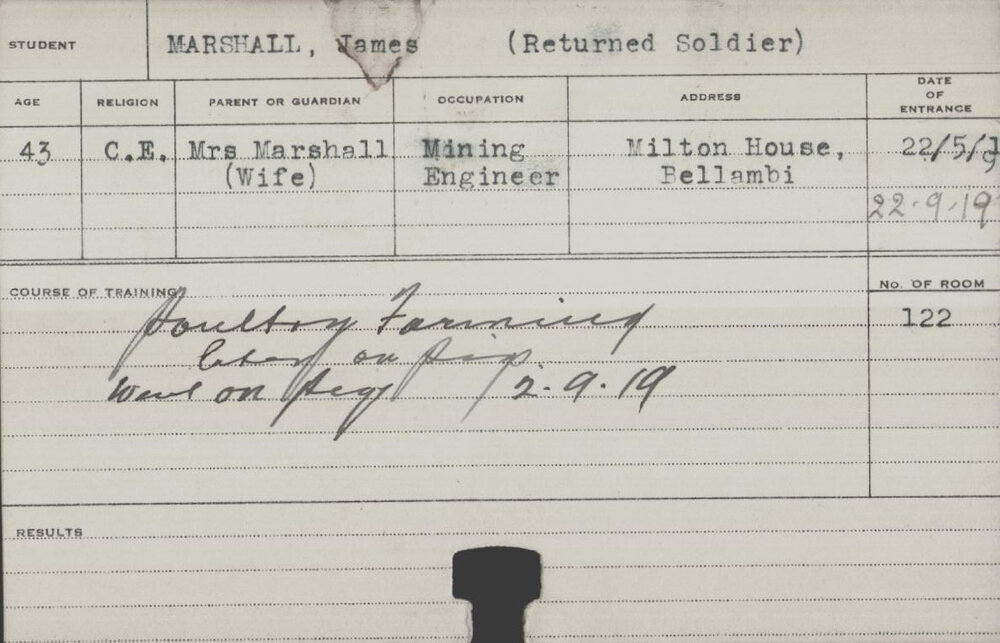 STUDENT MARSHALL, James (Returned Soldier)
AGE RELIGION PARENT OR GUARDIAN OCCUPATION ADDRESS DATE OF ENTRANCE
43 C.E. Mrs Marshall Mining Milton House, 22/5/19
(Wife) Engineer Bellambi
22.9.19
COURSE OF TRAINING No. OF ROOM
Poultry Farming 122
later on pig
Went on 12.9.19
RESULTS